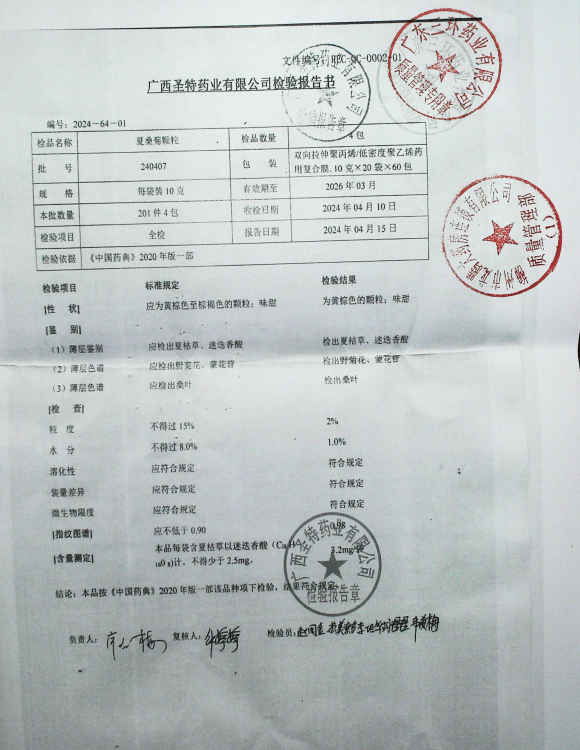 文件编号: REC-QC-0002-01
广西圣特药业有限公司检验报告书
编号: 2024-64-01
检品名称 夏桑菊颗粒 检品数量 4包
批 号 240407 包 装 双向拉伸聚丙烯/低密度聚乙烯药用复合膜. 10克×20袋×60包
规 格 每袋装10克 有效期至 2026年03月
本批数量 201件4包 收检日期 2024年04月10日
检验项目 全检 报告日期 2024年04月15日
检验依据 《中国药典》2020年版一部
检验项目 标准规定 检验结果
[性 状] 应为黄棕色至棕褐色的颗粒; 味甜 为黄棕色的颗粒; 味甜
[鉴 别]
(1) 薄层鉴别 应检出夏枯草、迷迭香酸 检出夏枯草、迷迭香酸
(2) 薄层色谱 应检出野菊花、蒙花苷 检出野菊花、蒙花苷
(3) 薄层色谱 应检出桑叶 检出桑叶
[检 查]
粒 度 不得过15% 2%
水 分 不得过8.0% 1.0%
溶化性 应符合规定 符合规定
装量差异 应符合规定 符合规定
微生物限度 应符合规定 符合规定
[指纹图谱] 应不低于0.90 0.98
[含量测定] 本品每袋含夏枯草以迷迭香酸（C18H16O8)计, 不得少于2.5mg。 3.2mg/袋
结论: 本品按《中国药典》2020年版一部该品种项下检验, 结果符合规定
负责人: 复核人: 检验员:
广东三环药业有限公司
质量管理专用章
广西圣特药业有限公司
检验报告章
质量管理部
(1)
广西圣特药业有限公司
检验报告章